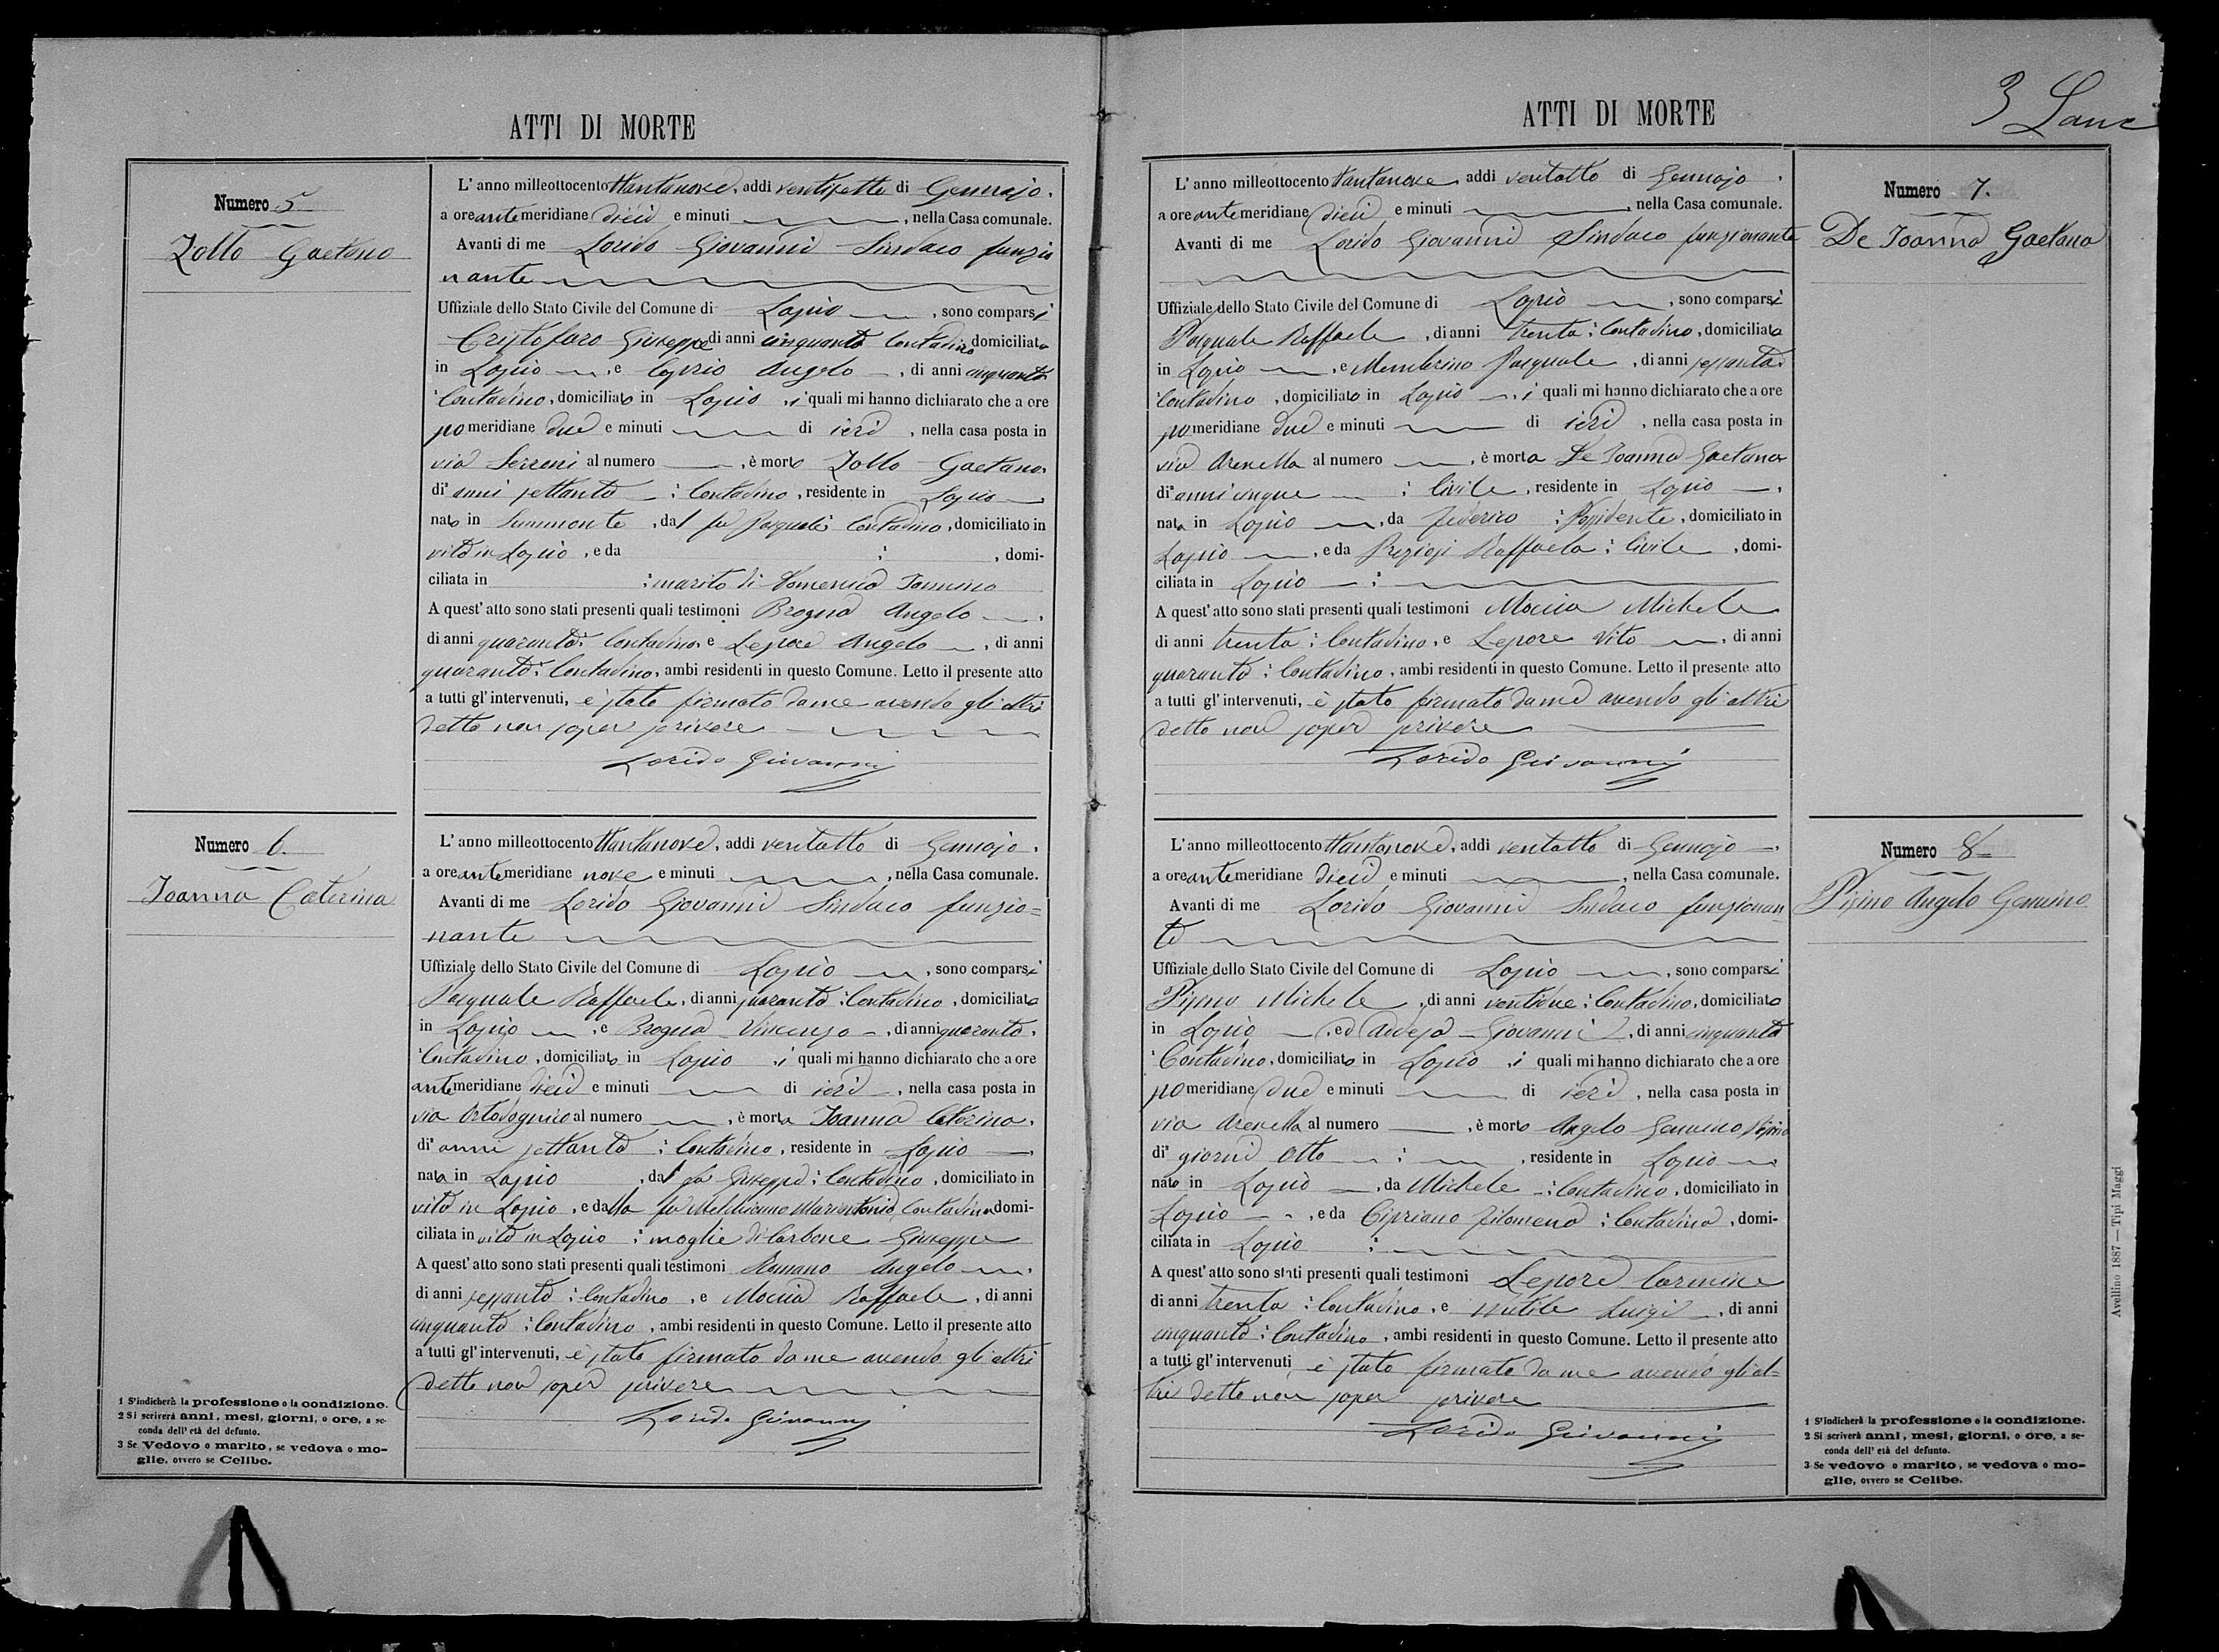 ATTI DI MORTE
Numero 5
Zollo Gaetano
L'anno milleottocento ottantanove, addi ventisette di Gennajo,
a ore ante meridiane dieci e minuti , nella Casa comunale.
Avanti di me Lorido Giovanni Sindaco funzio
nante
Uffiziale dello Stato Civile del Comune di Lapio , sono comparsi
Cristofaro Giuseppe di anni cinquanta Contadino domiciliato
in Lapio , e Angelo , di anni cinquanta
Contadino, domiciliato in Lapio , i quali mi hanno dichiarato che a ore
po meridiane due e minuti di ieri , nella casa posta in
via Serroni al numero , è morto Zollo Gaetano,
di anni settanta : Contadino, residente in Lapio ,
nato in Summonte , dal fu Pasquale Contadino, domiciliato in
vita in Lapio , e da : , domi-
ciliata in : marito di Domenica Iannino
A quest'atto sono stati presenti quali testimoni Brogna Angelo ,
di anni quaranta : Contadino, e Lepore Angelo , di anni
quaranta : Contadino, ambi residenti in questo Comune. Letto il presente atto
a tutti gl'intervenuti, è stato firmato da me avendo gli altri
detto non saper scrivere
Lorido Giovanni
Numero 6.
Ioanna Caterina
L'anno milleottocento ottantanove, addi ventotto di Gennajo,
a ore ante meridiane nove e minuti , nella Casa comunale.
Avanti di me Lorido Giovanni Sindaco funzio=
nante
Uffiziale dello Stato Civile del Comune di Lapio , sono comparsi
Pasquale Raffaele, di anni quaranta : Contadino, domiciliato
in Lapio , e Brogna Vincenzo , di anni quaranta,
Contadino, domiciliato in Lapio , i quali mi hanno dichiarato che a ore
ante meridiane dieci e minuti di ieri , nella casa posta in
via al numero , è morta Ioanna Caterina,
di anni settanta : Contadina, residente in Lapio ,
nata in Lapio , dal fu Giuseppe : Contadino, domiciliato in
vita in Lapio , e dalla fu Mariantonia, Contadina domi-
ciliata in vita in Lapio : moglie di Carbone Giuseppe
A quest'atto sono stati presenti quali testimoni Romano Angelo ,
di anni sessanta : Contadino , e Moccia Raffaele , di anni
cinquanta : Contadino , ambi residenti in questo Comune. Letto il presente atto
a tutti gl'intervenuti, è stato firmato da me avendo gli altri
detto non saper scrivere
Lorido Giovanni
1 S'indicherà la professione o la condizione.
2 Si scriverà anni, mesi, giorni, o ore, a se-
conda dell'età del defunto.
3 Se Vedovo o marito, se vedova o mo-
glie, ovvero se Celibe.
ATTI DI MORTE
3
Numero 7.
De Ioanna Gaetana
L'anno milleottocento ottantanove, addi ventotto di Gennajo ,
a ore ante meridiane dieci e minuti , nella Casa comunale.
Avanti di me Lorido Giovanni Sindaco funzionante
Uffiziale dello Stato Civile del Comune di Lapio , sono comparsi
Pasquale Raffaele , di anni trenta : Contadino, domiciliato
in Lapio , e Memberino Pasquale , di anni sessanta
Contadino , domiciliato in Lapio , i quali mi hanno dichiarato che a ore
po meridiane due e minuti di ieri , nella casa posta in
via Arenella al numero , è morta De Ioanna Gaetana
di anni cinque : Civile , residente in Lapio ,
nata in Lapio , da Federico : Possidente, domiciliato in
Lapio , e da Raffaela : Civile , domi-
ciliata in Lapio :
A quest'atto sono stati presenti quali testimoni Moccia Michele
di anni trenta : Contadino, e Lepore Vito , di anni
quaranta : Contadino, ambi residenti in questo Comune. Letto il presente atto
a tutti gl'intervenuti, è stato firmato da me avendo gli altri
detto non saper scrivere
Lorido Giovanni
Numero 8
Pisino Angelo Gennino
L'anno milleottocento ottantanove, addi ventotto di Gennajo ,
a ore ante meridiane dieci e minuti , nella Casa comunale.
Avanti di me Lorido Giovanni Sindaco funzionan
te
Uffiziale dello Stato Civile del Comune di Lapio , sono comparsi
Pisino Michele , di anni ventinove : Contadino, domiciliato
in Lapio , ed Giovanni , di anni cinquanta
Contadino, domiciliato in Lapio , i quali mi hanno dichiarato che a ore
po meridiane due e minuti di ieri , nella casa posta in
via Arenella al numero , è morto Angelo Gennino Pisino
di giorni otto : , residente in Lapio
nato in Lapio , da Michele : Contadino, domiciliato in
Lapio , e da Cipriano Filomena : Contadina , domi-
ciliata in Lapio :
A quest'atto sono stati presenti quali testimoni Lepore Carmine
di anni trenta : Contadino, e Nutile Luigi , di anni
cinquanta : Contadino , ambi residenti in questo Comune. Letto il presente atto
a tutti gl'intervenuti è stato firmato da me avendo gli al=
tri detto non saper scrivere
Lorido Giovanni
1 S'indicherà la professione o la condizione.
2 Si scriverà anni, mesi, giorni, o ore, a se-
conda dell'età del defunto.
3 Se vedovo o marito, se vedova o mo-
glie, ovvero se Celibe.
Avellino 1887 — Tipi Maggi